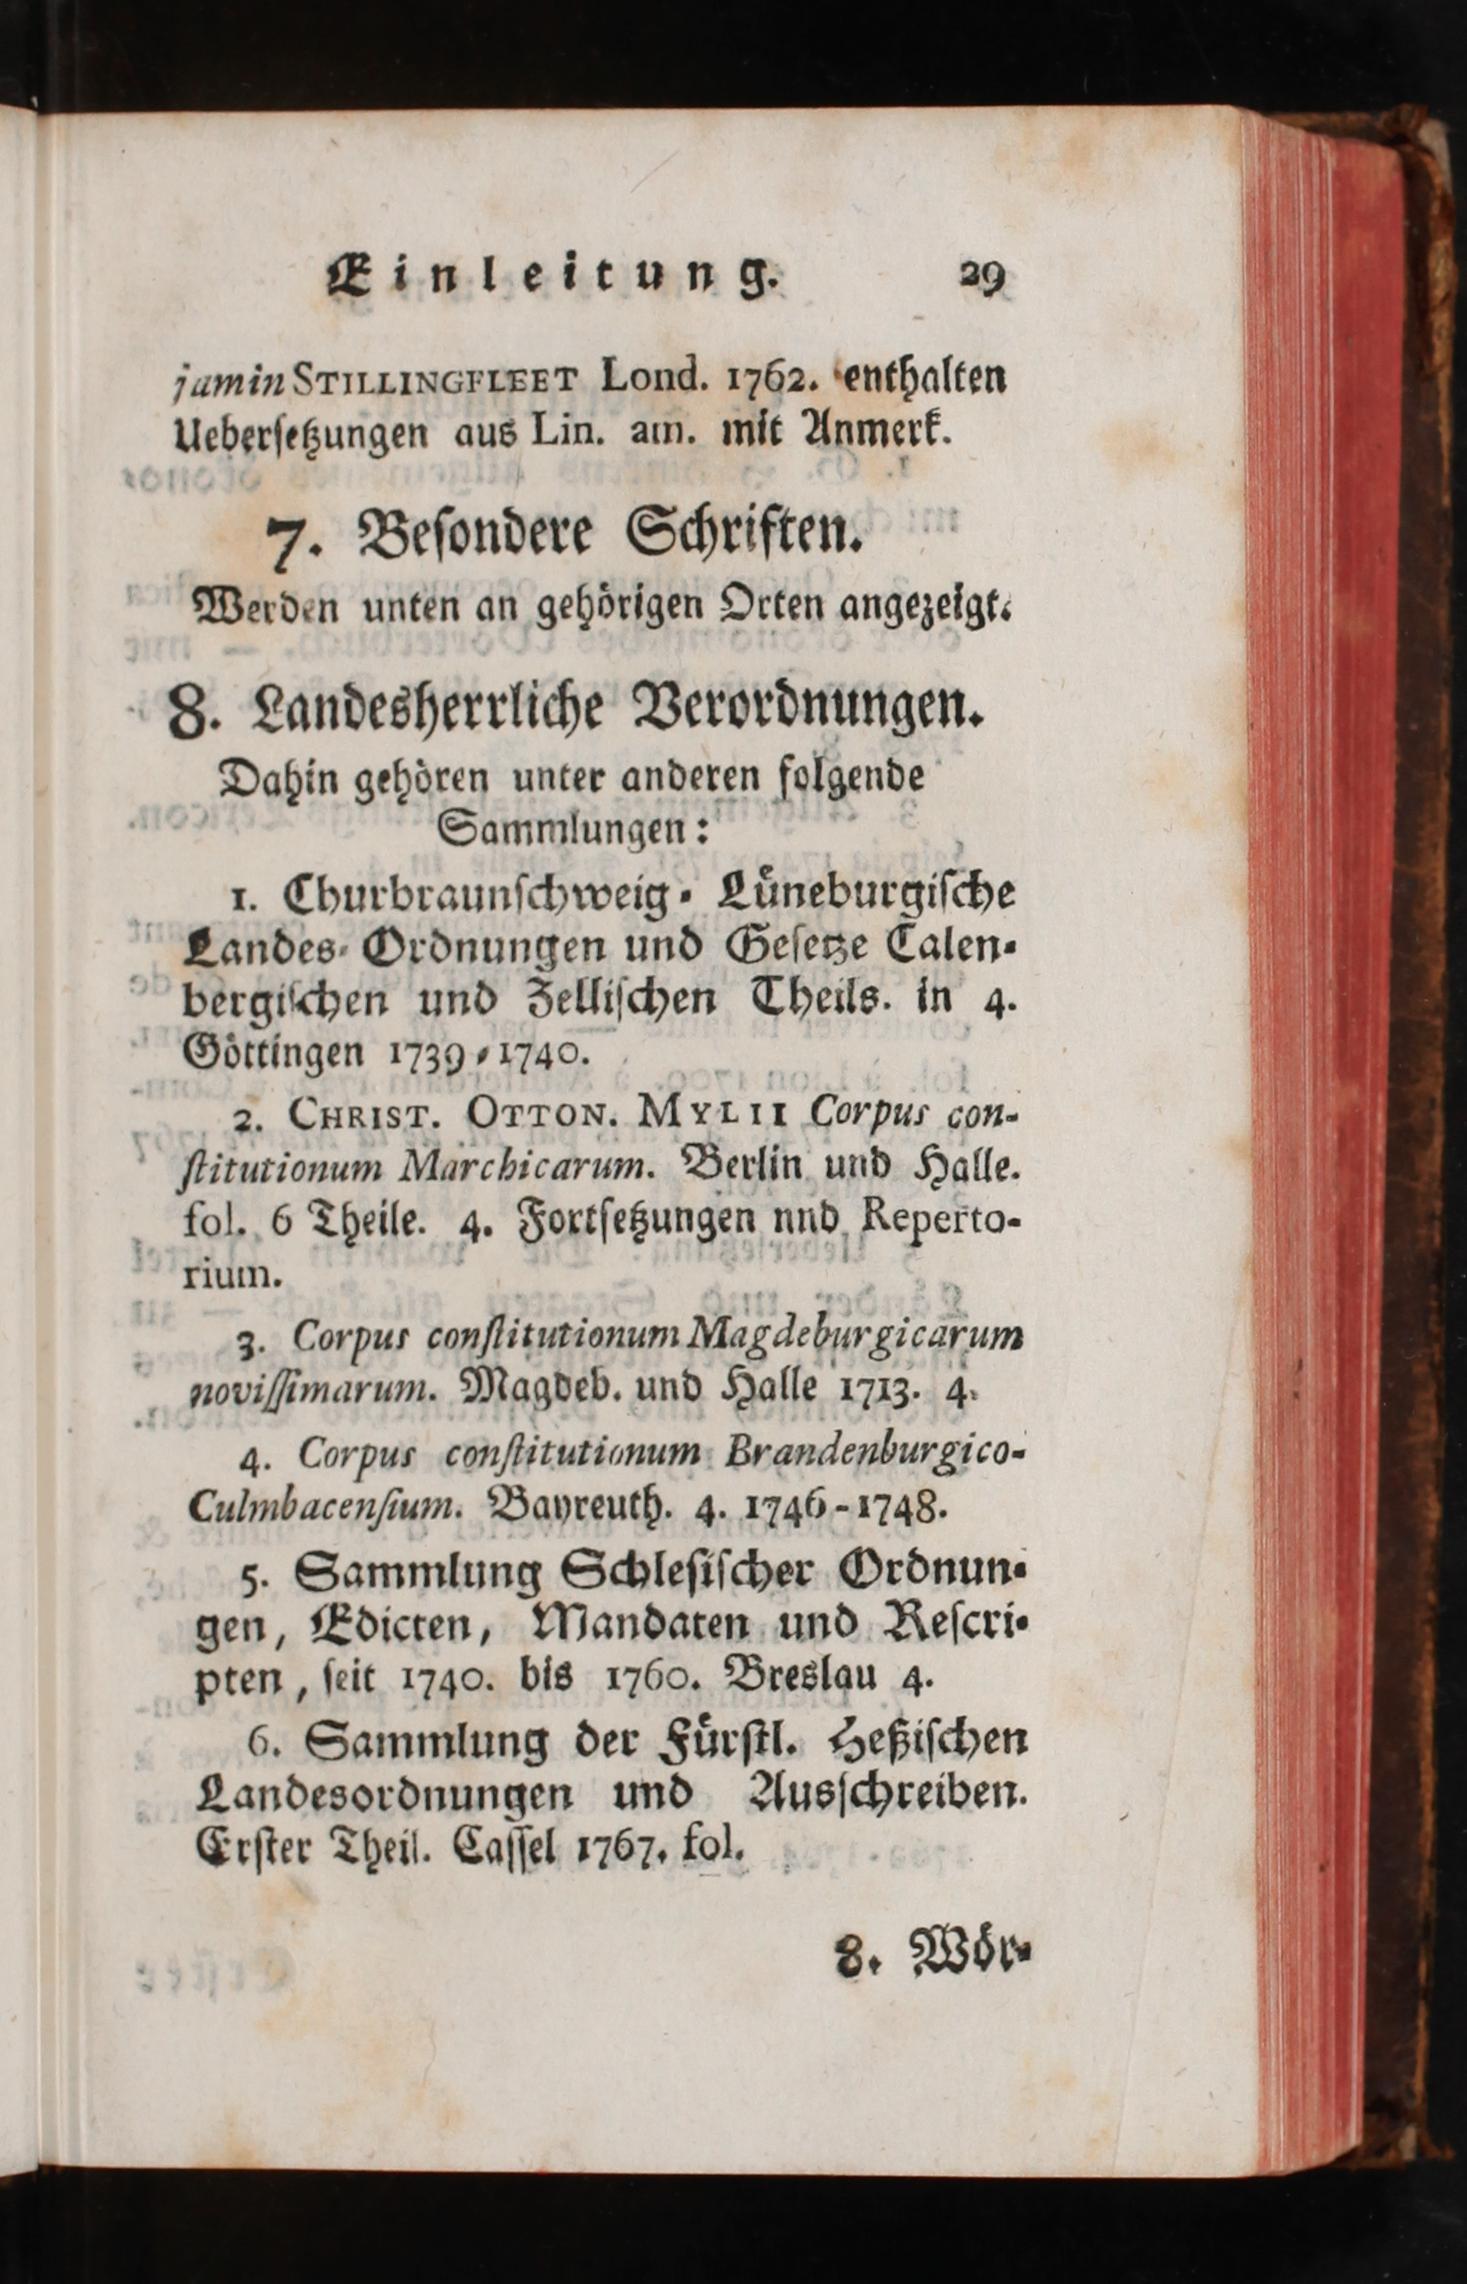 Einleitung. 29
jamin STILLINGFLEET Lond. 1762. enthalten
Uebersetzungen aus Lin. am. mit Anmerk.
7. Besondere Schriften.
Werden unten an gehörigen Orten angezeigt.
8. Landesherrliche Verordnungen.
Dahin gehören unter anderen folgende
Sammlungen:
1. Churbraunschweig-Lüneburgische
Landes-Ordnungen und Gesetze Calen-
bergischen und Zellischen Theils. in 4.
Göttingen 1739-1740.
2. CHRIST. OTTON. MYLII Corpus con-
stitutionum Marchicarum. Berlin und Halle.
fol. 6 Theile. 4. Fortsetzungen nnd Reperto-
rium.
3. Corpus constitutionum Magdeburgicarum
novissimarum. Magdeb. und Halle 1713. 4.
4. Corpus constitutionum Brandenburgico-
Culmbacensium. Bayreuth. 4. 1746-1748.
5. Sammlung Schlesischer Ordnun-
gen, Edicten, Mandaten und Rescri-
pten, seit 1740. bis 1760. Breslau 4.
6. Sammlung der Fürstl. Heßischen
Landesordnungen und Ausschreiben.
Erster Theil. Cassel 1767. fol.
8. Wör-